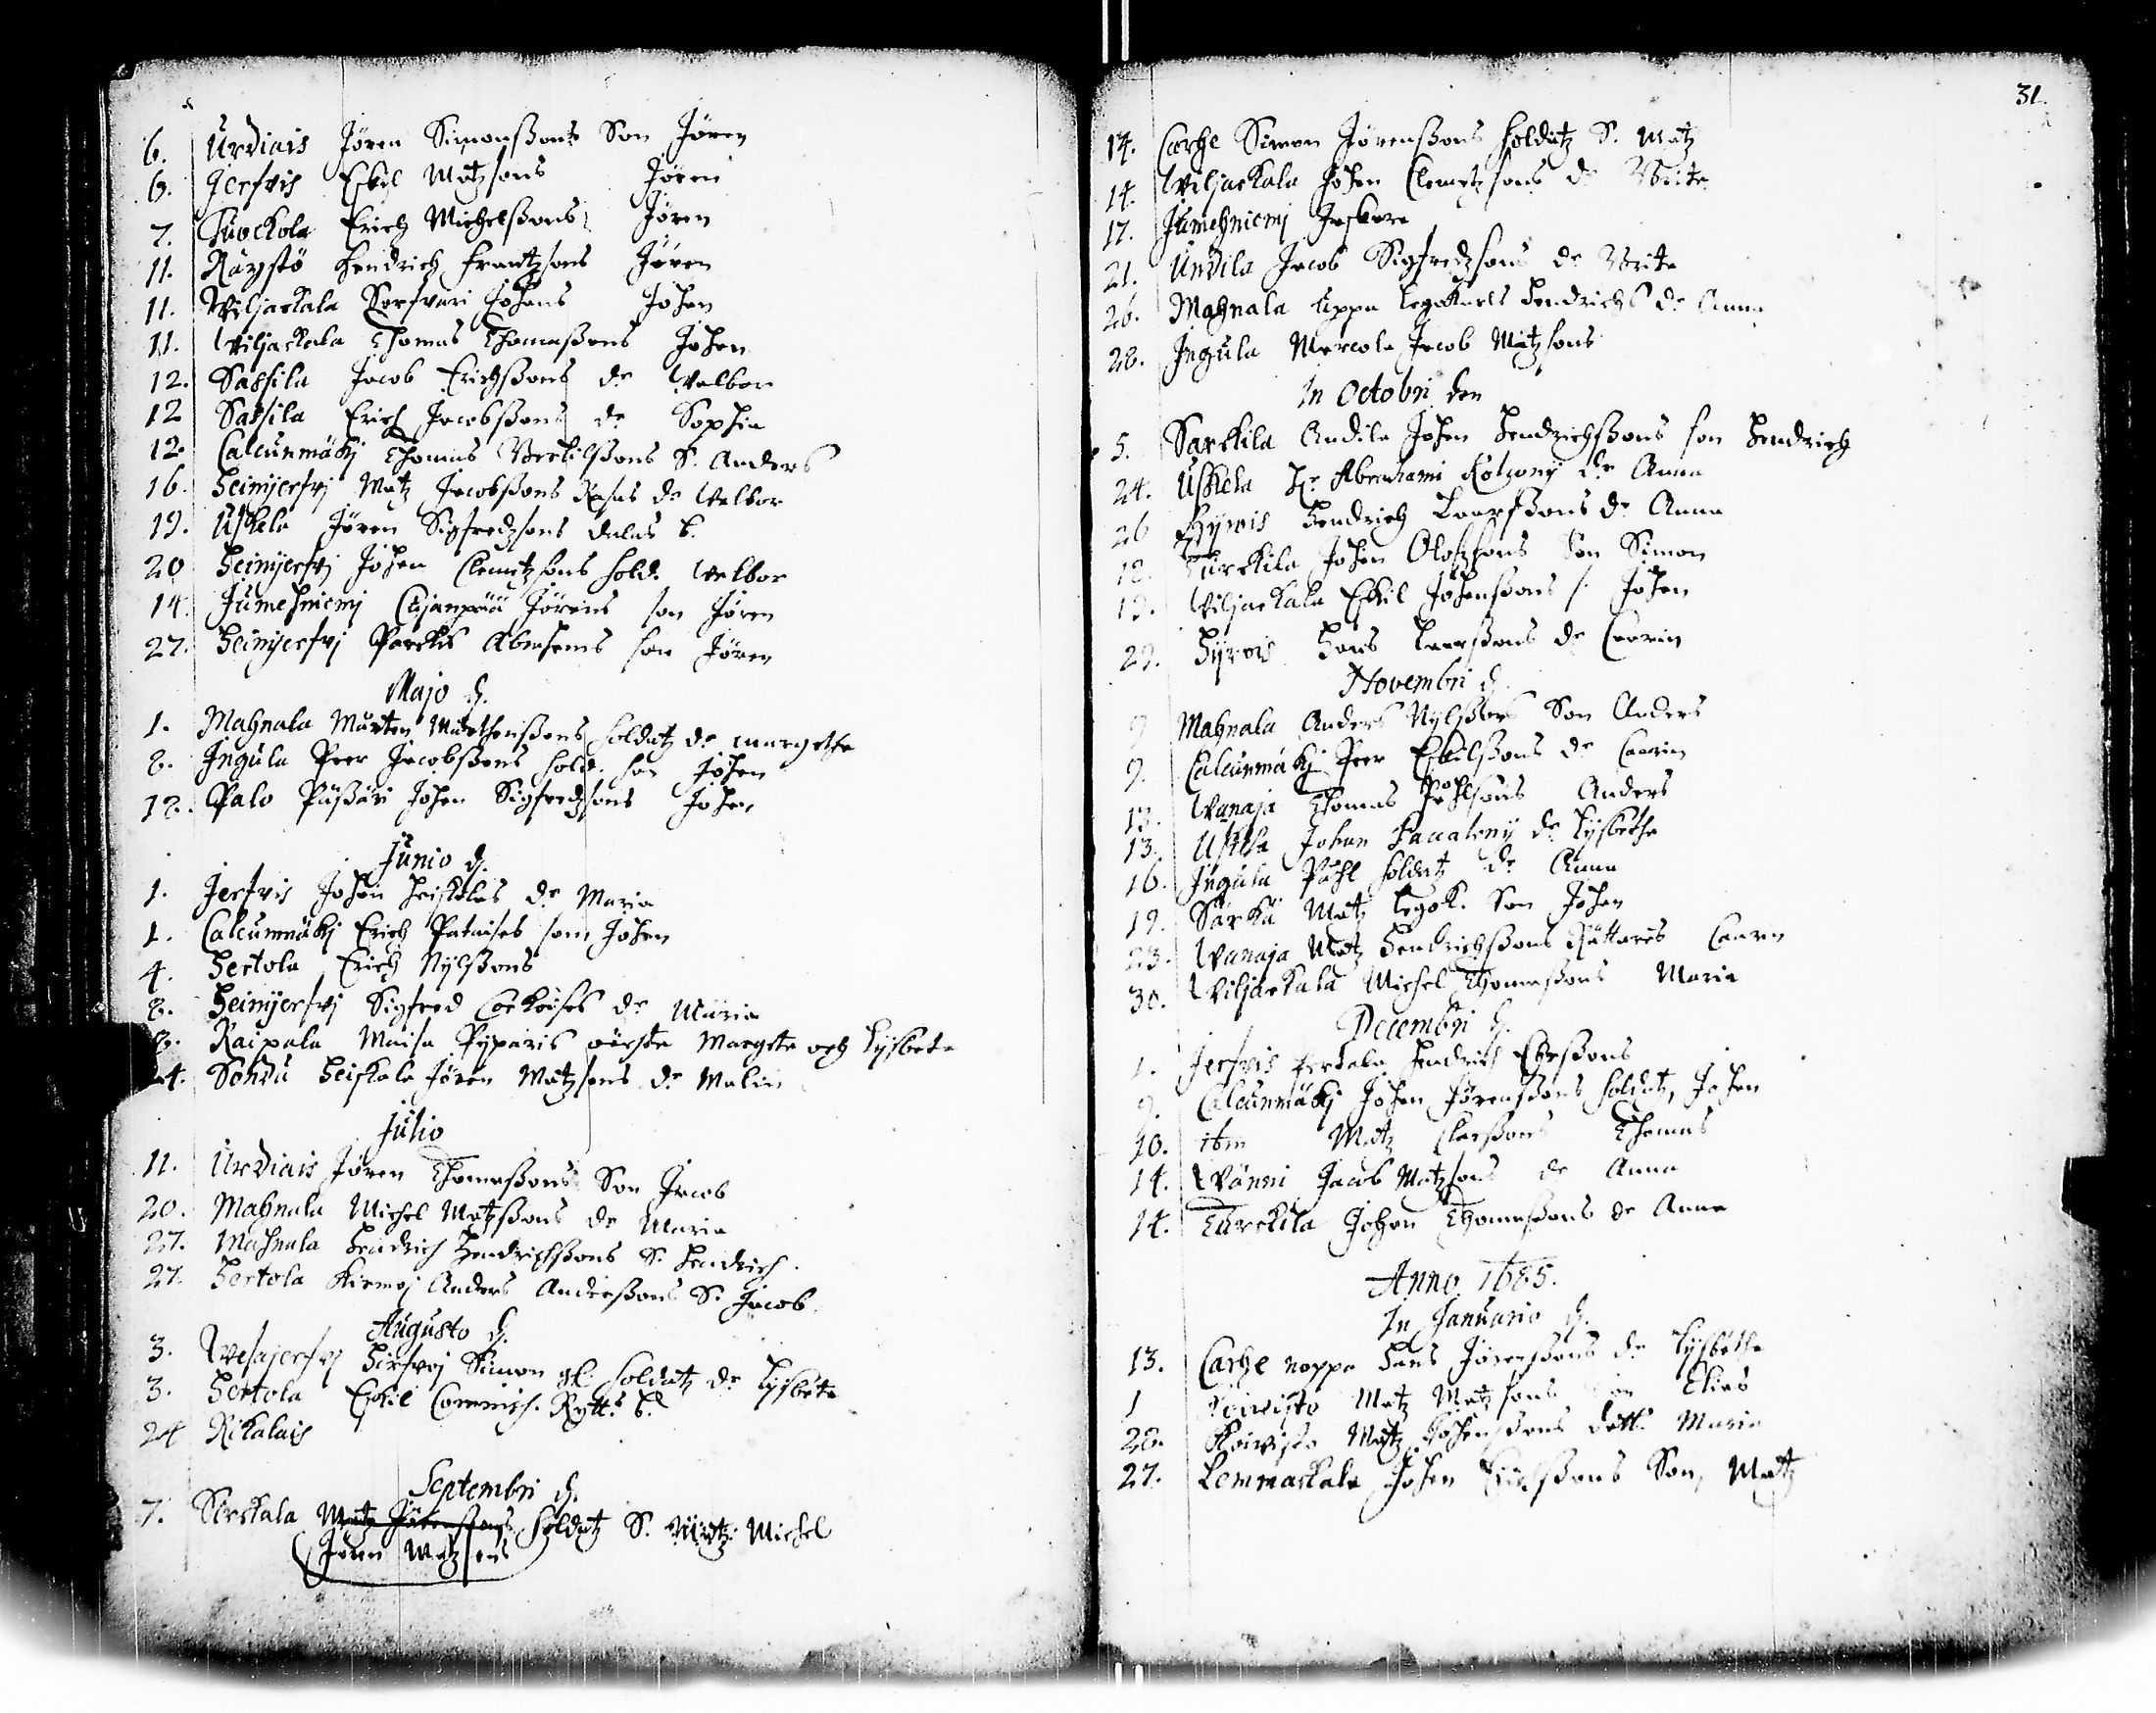 6. Urdiais Jören Simonßons Son Jören
6. Jerfvis Eskil Matzsons Jören
7. Kuockola Erich Michelßons Jören
11. Räystö Hendrich Frantzsons Jören
11. Wiljackala Sorfvari Johans Johan
11. Wiljackala Thomas Thomaßons Johan
12. Sassila Jacob Erichßons de Walbor
12 Sassila Erich Jacobßons de Sophia
12. Calcunmäkj Thomas Bertilßons S. Anders
16. Heinijerfvj Matz Jacobßons de Walbor
19. Uskela Jören Sigfredzsons
20 Heinijerfvj Johan Clemetzsons sold. Walbor
14 Jumesniemj Jörens son Jören
27. Heinijerfvj Abrahams son Jören
Majo d.
1. Mahnala Mårten Mårthenßons soldatz de margetha
8. Ingula Peer Jacobßons sold. son Johan
18. Palo Johan Sigfredzsons Johan
Junio d.
1. Jerfvis Johan Heiskalas de Maria
1. Calcunmäkj Erich son Johan
4. Hertola Erich Nylßons
8. Heinijerfvj Sigfred de Maria
8. Raipala Maisa Pyparis Margeta och Lysbeta
4. Heiskala Jören Matzsons de Malin
Julio
11. Urdiais Jören Thomaßons Son Jacob
20. Mahnala Michel Matzßons de Maria
27. Mahnala Hendrich Hendrichßons S. Hendrich
27. Hertola Anders Anderßons S. Jacob
Augusto d.
3. Wesajerfvj Hirfvoj Simon soldatz de Lysbeta
3. Hertola Eskil
24 Rikalais
Septembri d.
7. Sirckala Matz Jörenßons soldatz S. Matz Michel
(Jören Matzsons)
31.
14. Carhe Simon Jörenßons soldatz S. Matz
14. Wiljackala Johan Clemetzsons de Brita
17. Jumesniemj
21. Undila Jacob Sigfredzsons de Brita
26. Mahnala Uppa Hendrichs de Anna
28. Ingula Marcola Jacob Matzsons
In Octobri den
5. Sarckila Andila Johan Hendrichßons son Hendrich
24. Uskela Hr Abrahami de Anna
26 Hyrvis Hendrich Larßons de Anna
12. Turckila Johan Olofzsons Son Simon
19. Wiljackala Eskil Johanßons s. Johan
29. Hyrvis Hans Larßons de Caarin
Novembri d.
9 Mahnala Anders Nylßons Son Anders
9. Calcunmäkj Peer Eskilßons de Caarin
13. Wanaja Thomas Påhlsons Anders
13. Uskela Johan de Lysbetha
16. Ingula Påhl soldatz de Anna
19. Särkä Matz Legok. Son Johan
23. Wanaja Matz Hendrichßons Caarin
30. Wiljackala Michel Thomaßons Maria
Decembri d.
1. Jerfvis Hendrich
9. Calcunmäkj Johan Jörenßons soldatz, Johan
10. itm Matz Clarßons Thomas
14. Wänni Jacob Matzsons de Anna
14. Turckila Johan Thomaßons de Anna
Anno 1685.
In Januario d.
13. Carhe noppa Hans Jörenßons de Lysbetha
1 Koivisto Matz Matzsons Son Elias
28. Koivisto Matz Johanßons dott. Maria
27. Lemmackala Johan Son, Matz